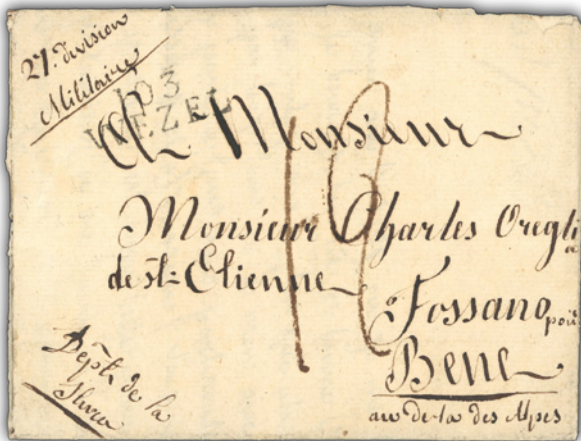 27. division
Militaire
103
WEZEL
A Monsieur
Monsieur Charles Oregli
a
de st: Etienne
Fossano pour
Bene
au de-la des Alpes
Dept. de la
Stura